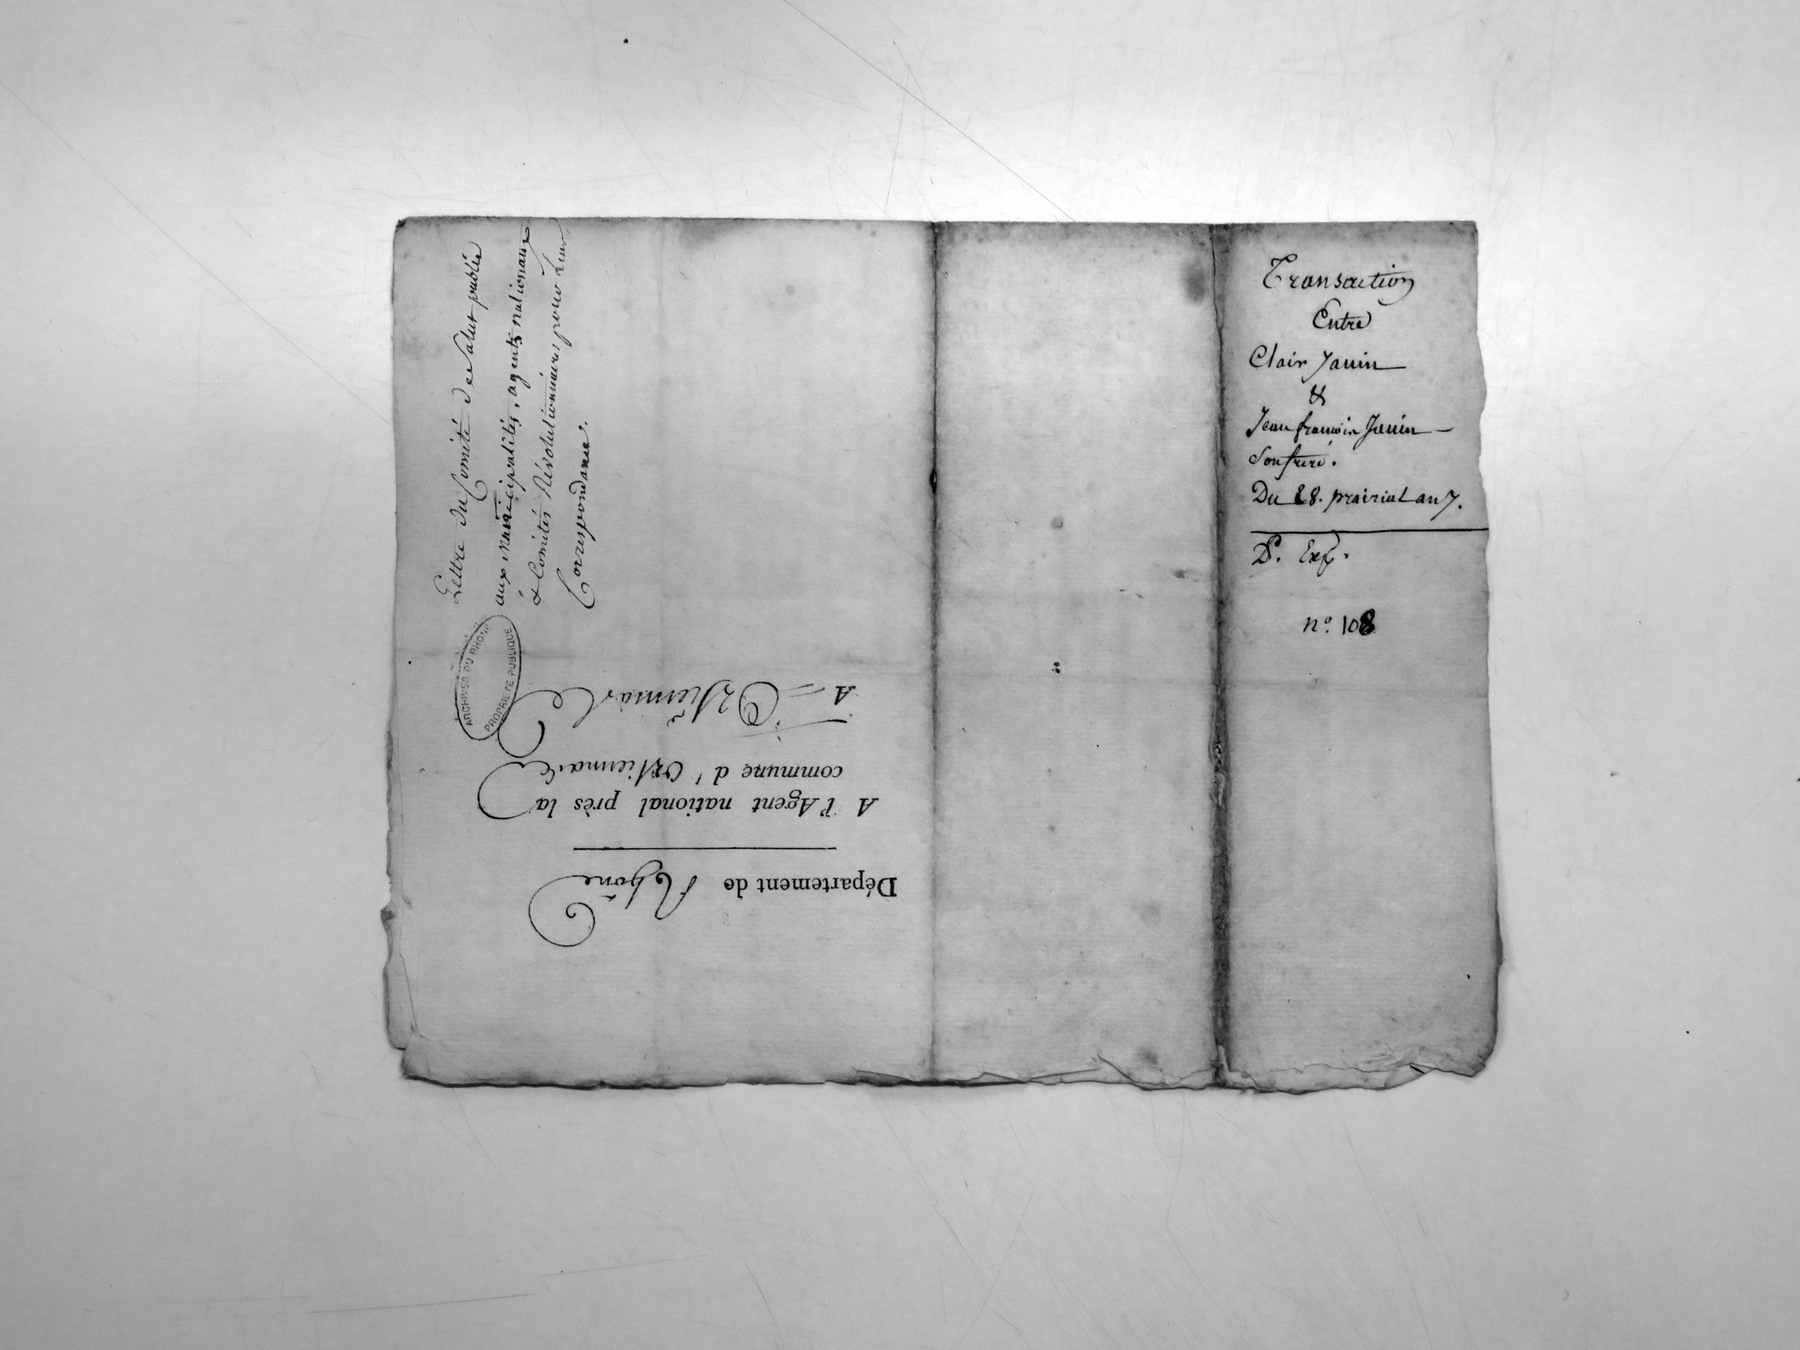 Transaction
Entre
Clair Janin
&
Jean françois Janin
Son frere.
Du 28. prairial an 7.
Dr. Exp.
n.° 108
Lettre du Comité de Salut public
aux municipalités, agents nationaux
& Comités Révolutionnaires pour leur
Correspondance.
ARCHIVES DU RHONE
PROPRIETE PUBLIQUE
Département de Rhône
A l'Agent national près la
commune d'
A